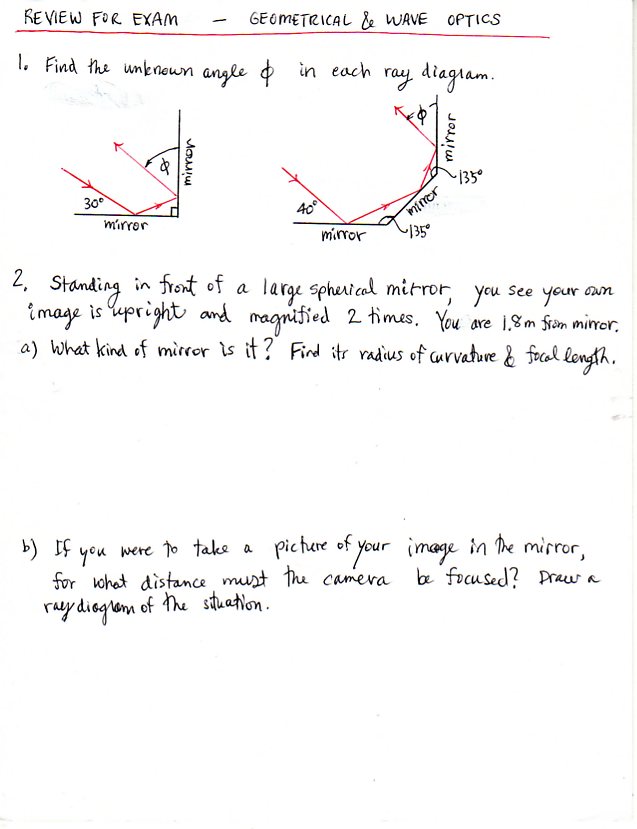 REVIEW FOR EXAM — GEOMETRICAL & WAVE OPTICS
1. Find the unknown angle ϕ in each ray diagram.
30°
ϕ
mirror
mirror
40°
ϕ
mirror
135°
mirror
135°
mirror
2. Standing in front of a large spherical mirror, you see your own
image is upright and magnified 2 times. You are 1.8m from mirror.
a) What kind of mirror is it? Find its radius of curvature & focal length.
b) If you were to take a picture of your image in the mirror,
for what distance must the camera be focused? Draw a
ray diagram of the situation.